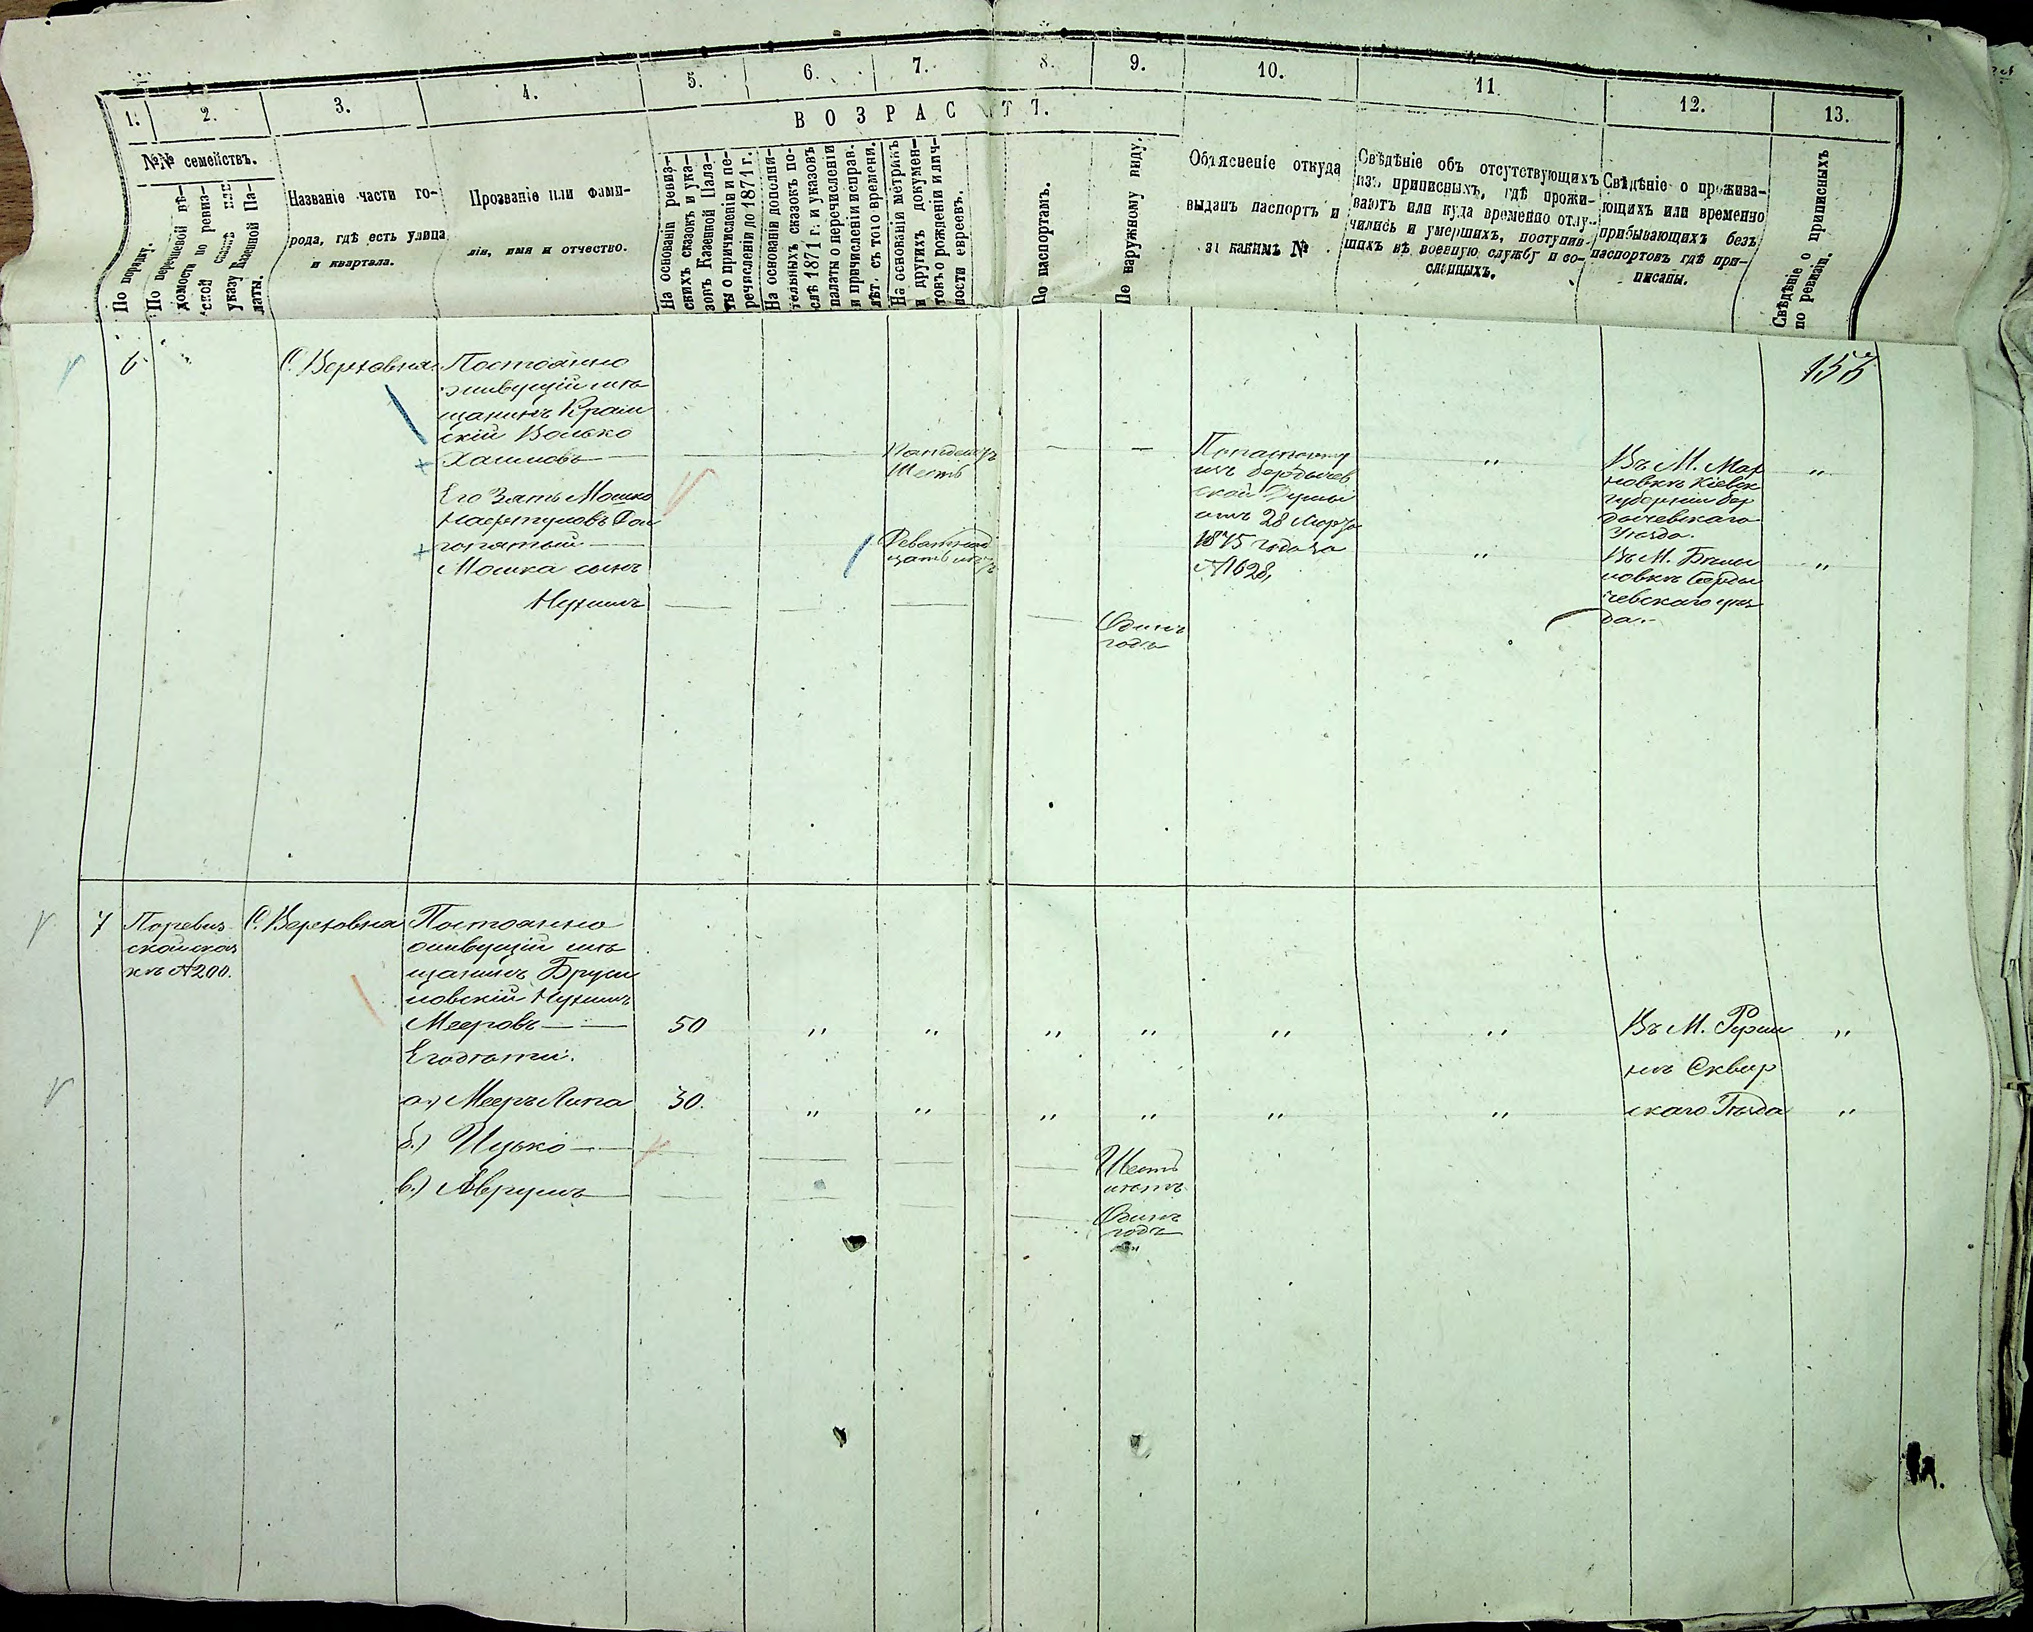 1.
2.
3.
4.
5.
6.
7.
8.
9.
10.
11.
12.
13.
ВОЗРАСТЪ.
№№ семействъ.
По порядку.
По перечневой вѣ-
домости по ревиз-
ской сказкѣ или
указу Казенной Па-
латы.
Названіе части го-
рода, гдѣ есть улица
и квартала.
Прозваніе или фами-
лія, имя и отчество.
На основаніи ревиз-
скихъ сказокъ и ука-
зовъ Казенной Пала-
ты о причисленіи и пе-
речисленіи до 1871 г.
На основаніи дополни-
тельныхъ сказокъ по-
слѣ 1871 г. и указовъ
палаты о перечисленіи
и причисленіи исправ.
лѣт. съ того времени.
На основаніи метрикъ
и другихъ докумен-
товъ о рожденіи и лич-
ности евреевъ.
По паспортамъ.
По наружному виду.
Объясненіе откуда
выданъ паспортъ и
за какимъ №
Свѣдѣніе объ отсутствующихъ
изъ приписныхъ, гдѣ прожи-
ваютъ или куда временно отлу-
чились и умершихъ, поступив-
шихъ въ военную службу и со-
сланныхъ.
Свѣдѣніе о прожива-
ющихъ или временно
прибывающихъ безъ
паспортовъ гдѣ при-
писаны.
Свѣдѣніе о приписныхъ
по ревизіи.
153
6
С. Верховна
Постоянно
живущій мѣ
щанинъ Краим
скій Волько
Хаимовъ
Его Зять Мошко
Нафтуловъ
Мошка сынъ
Нухимъ
Пятдесятъ
Шесть
Девятнад
цать лѣтъ
Одинъ
годъ
Бердичев
ской Думы
отъ 28 Марта
1875 года за
№ 1628,
Въ М. Мах
новкѣ Кіевск
губерніи Бер
дичевскаго
Уѣзда.
Въ М. Бѣли
ловкѣ Берди
чевскаго уѣз
да.
7
По ревиз
ской сказ
кѣ № 200.
С. Верховна
Постоянно
живущій мѣ
щанинъ Бруси
ловскій Нухимъ
Мееровъ
50
Въ М. Ружи
Его дѣти:
нѣ Сквир
а.) Мееръ Липа
30.
скаго Уѣзда
б.) Ицько
Шесть
лѣтъ
в.) Аврумъ
Одинъ
годъ